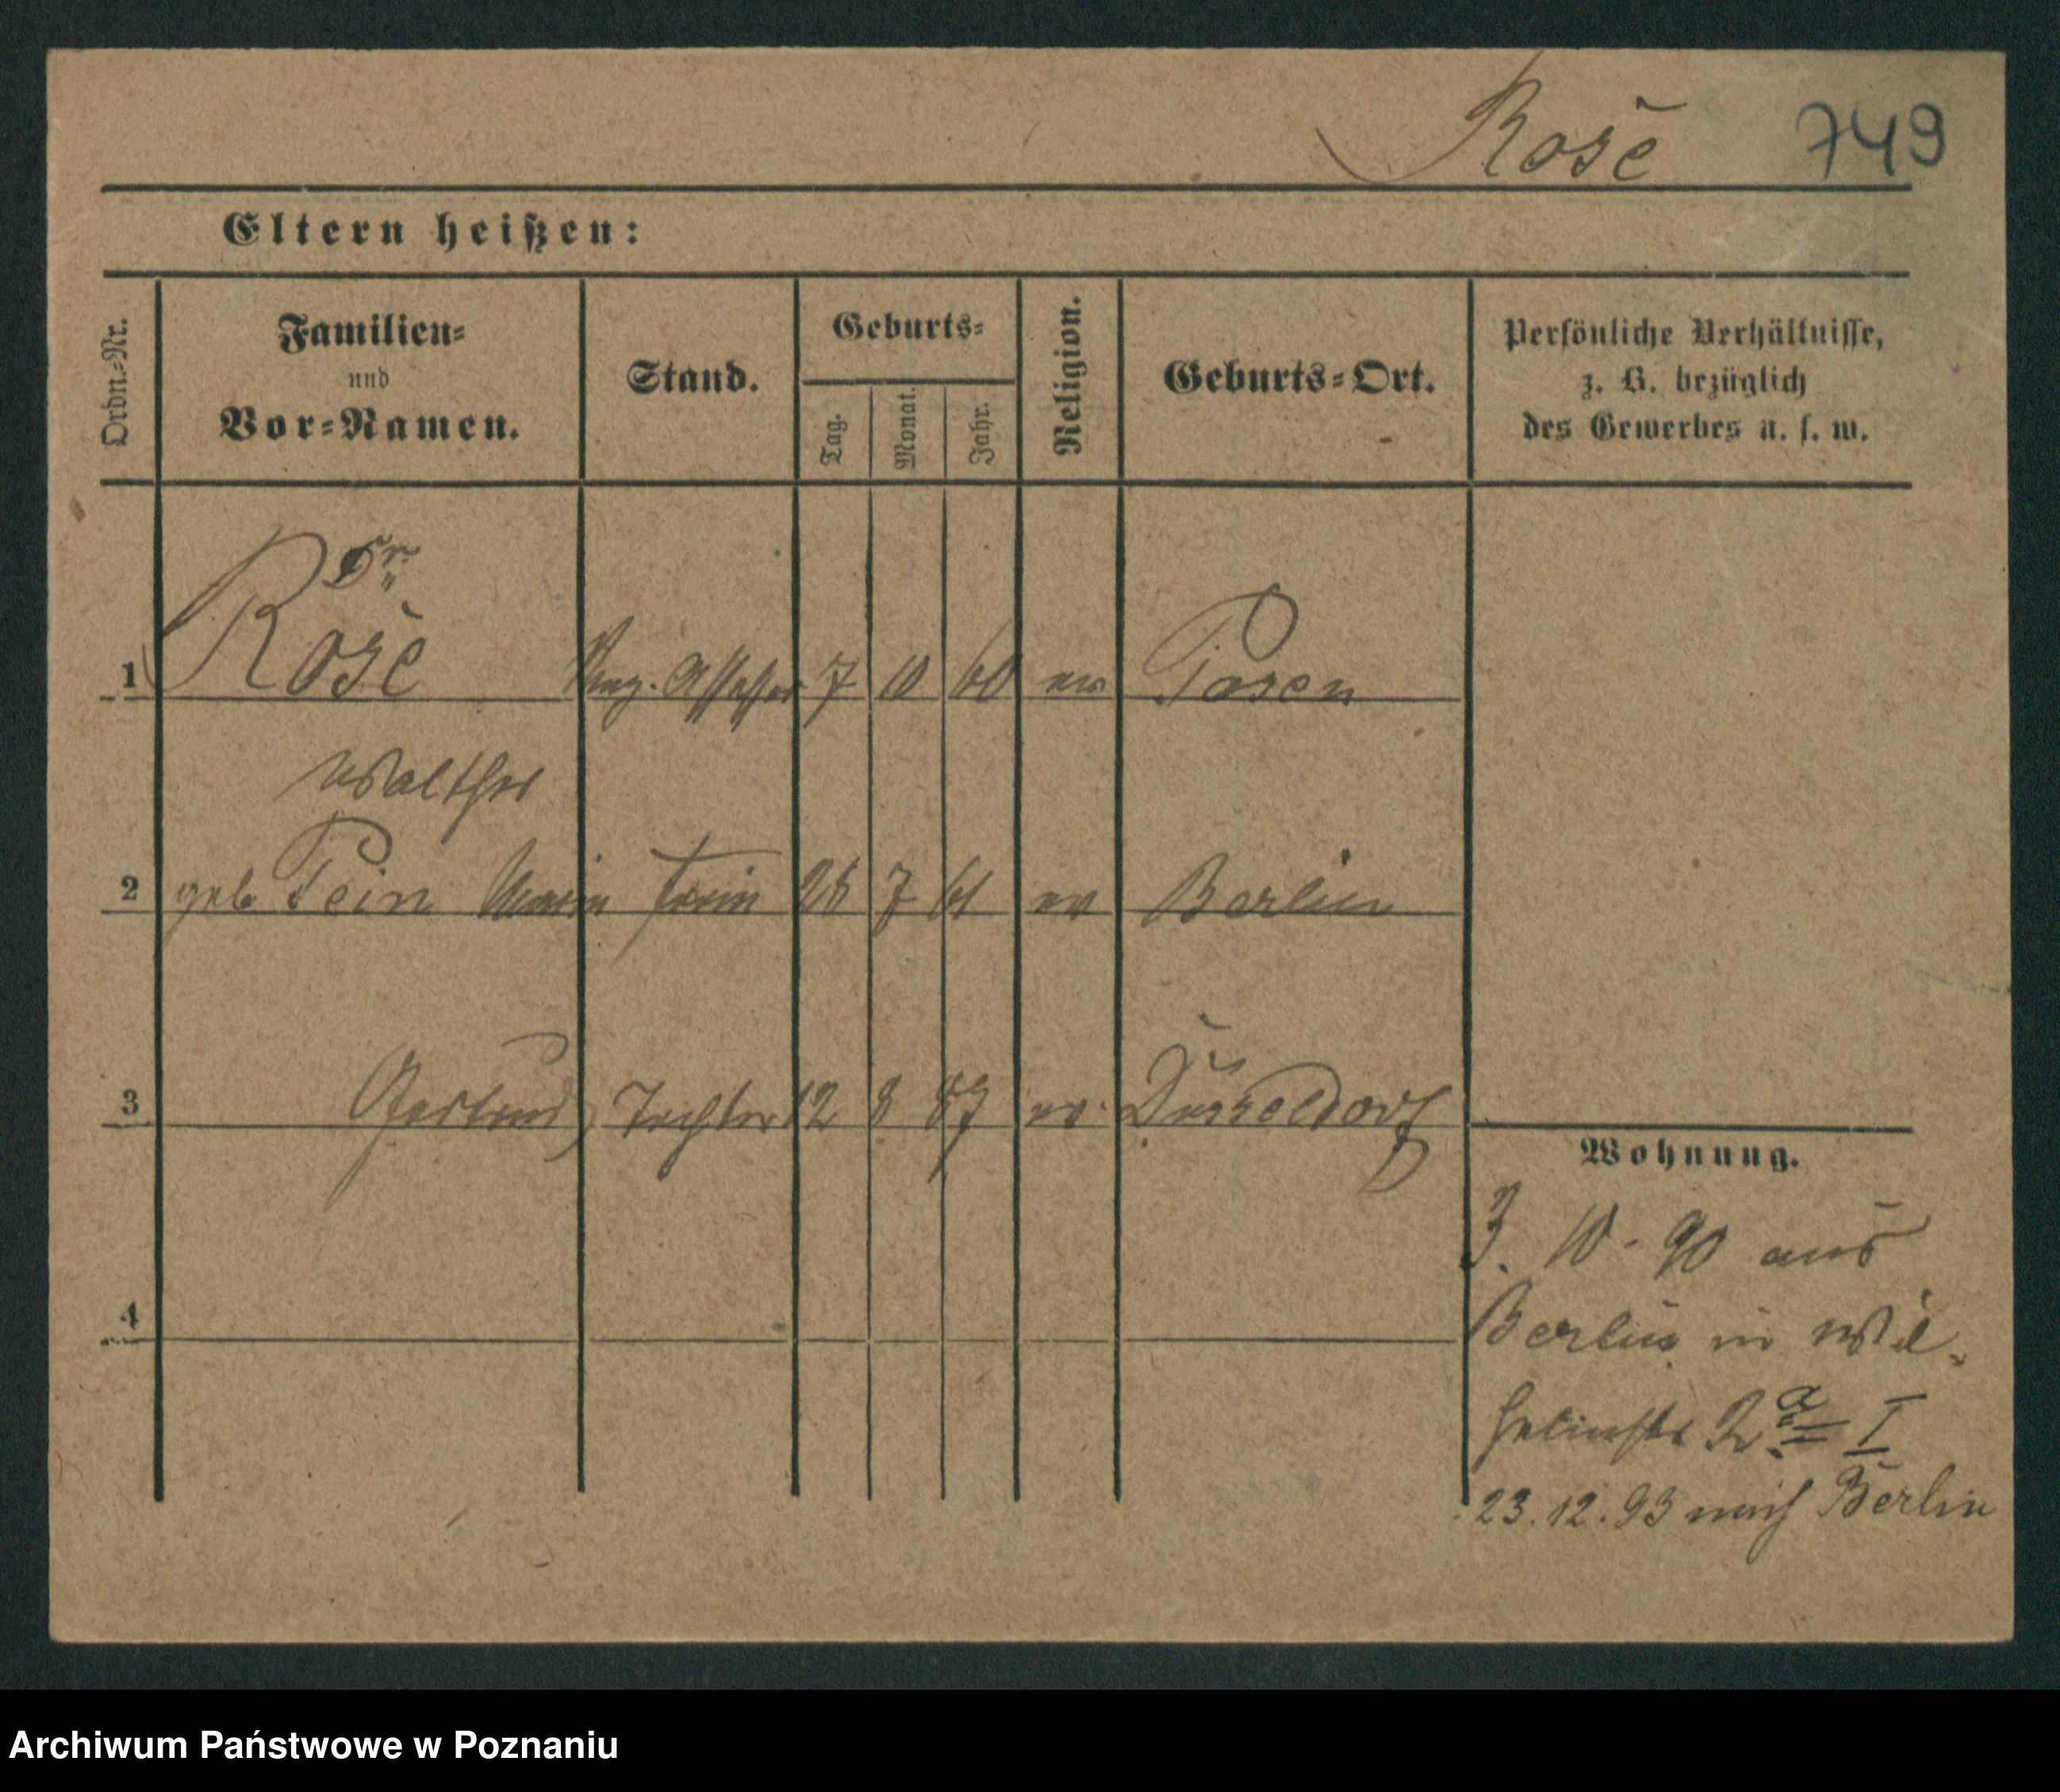 Rosé 749
Eltern heißen:
Ordn.-Nr.
Familien-
und
Vor-Namen.
Stand.
Geburts-
Tag.
Monat.
Jahr.
Religion.
Geburts-Ort.
Persönliche Verhältnisse,
z. B. bezüglich
des Gewerbes u. s. w.
Dr.
1 Rosé 7 10 60 ev Posen
Walther
2 geb Pein Frau 28 7 61 ev Berlin
3 Gertrud Tochter 12 8 87 ev. Düsseldorf
4
Wohnung.
3. 10 - 90 aus
Berlin in Wil-
helmstr 2 a I
23.12.93 nach Berlin
Archiwum Państwowe w Poznaniu